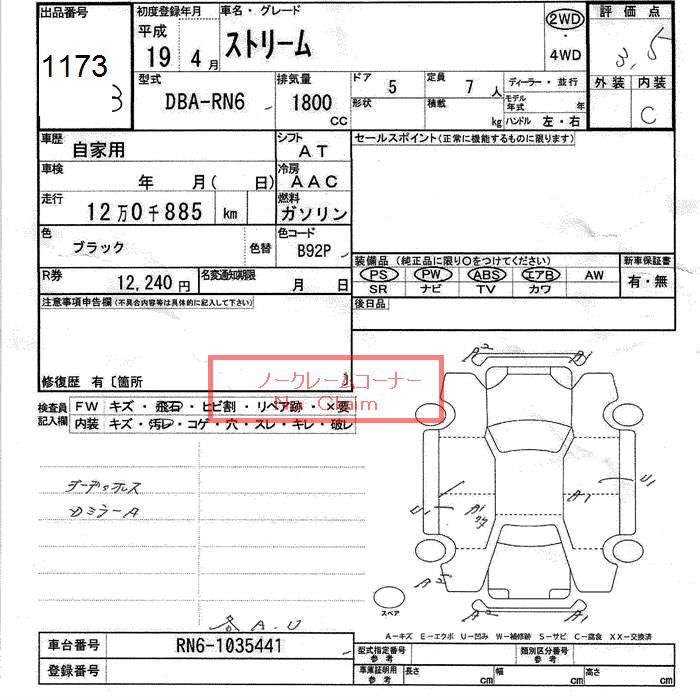 出品番号
1173
3
初度登録年月
平成
19 4月
車名・グレード
ストリーム
2WD
・
4WD
評価点
3.5
外装 内装
C
型式
DBA-RN6
排気量
1800
CC
ドア 5
定員 7人
ディーラー・並行
形状
積載 kg
モデル年式 年
ハンドル 左・右
車歴
自家用
シフト
AT
セールスポイント(正常に機能するものに限ります)
車検
年 月( 日)
冷房
AAC
走行
12万0千885 km
燃料
ガソリン
色
ブラック
色替
色コード
B92P
装備品 (純正品に限り○をつけてください)
新車保証書
PS PW ABS エアB AW
有・無
SR ナビ TV カワ
R券
12,240円
名変通知期限
月 日
後日品
注意事項申告欄(不具合内容等は具体的に記入して下さい)
修復歴 有〔箇所 〕
ノークレームコーナー
No Claim
検査員
記入欄
FW キズ・飛石・ヒビ割・リペア跡・×要
内装 キズ・汚レ・コゲ・穴・スレ・キレ・破レ
ミラーA
A2 A1
U1 A1 A1 U1
A2
A2 A1
スペア
各 A.U
A-キズ E-エクボ U-凹み W-補修跡 S-サビ C-腐食 XX-交換済
車台番号
RN6-1035441
登録番号
型式指定番号
参考
類別区分番号
参考
車庫証明用
参考
長さ cm
幅 cm
高さ cm